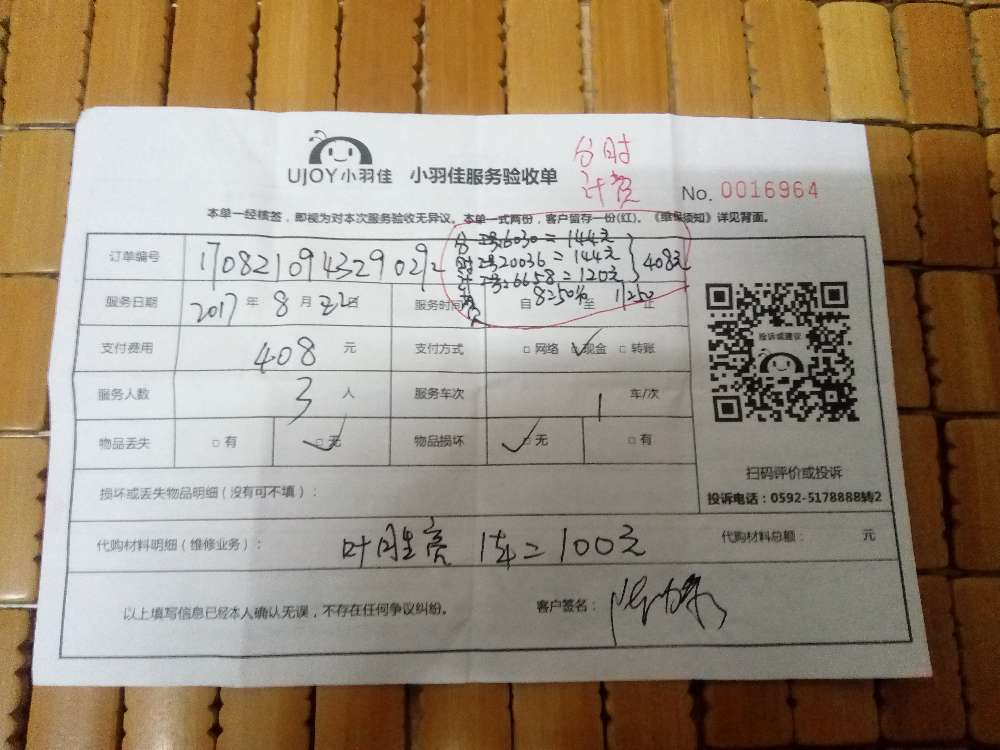 UJOY小羽佳 小羽佳服务验收单
分时
计费
No. 0016964
本单一经核签，即视为对本次服务验收无异议。本单一式两份，客户留存一份(红)。《维保须知》详见背面。
订单编号 170821094329029
工号6030=144元
工号20036=144元
工号26658=120元
408元
服务日期 2017年8月22日 服务时间 自 8:50 至 17:50 止
支付费用 408 元 支付方式 □网络 ☑现金 □转账
服务人数 3 人 服务车次 1 车/次
物品丢失 □有 ☑无 物品损坏 ☑无 □有
扫码评价或投诉
投诉电话：0592-5178888转2
损坏或丢失物品明细（没有可不填）：
代购材料明细（维修业务）： 叶胜亮 1车=100元 代购材料总额： 元
以上填写信息已经本人确认无误，不存在任何争议纠纷。 客户签名：
投诉或建议